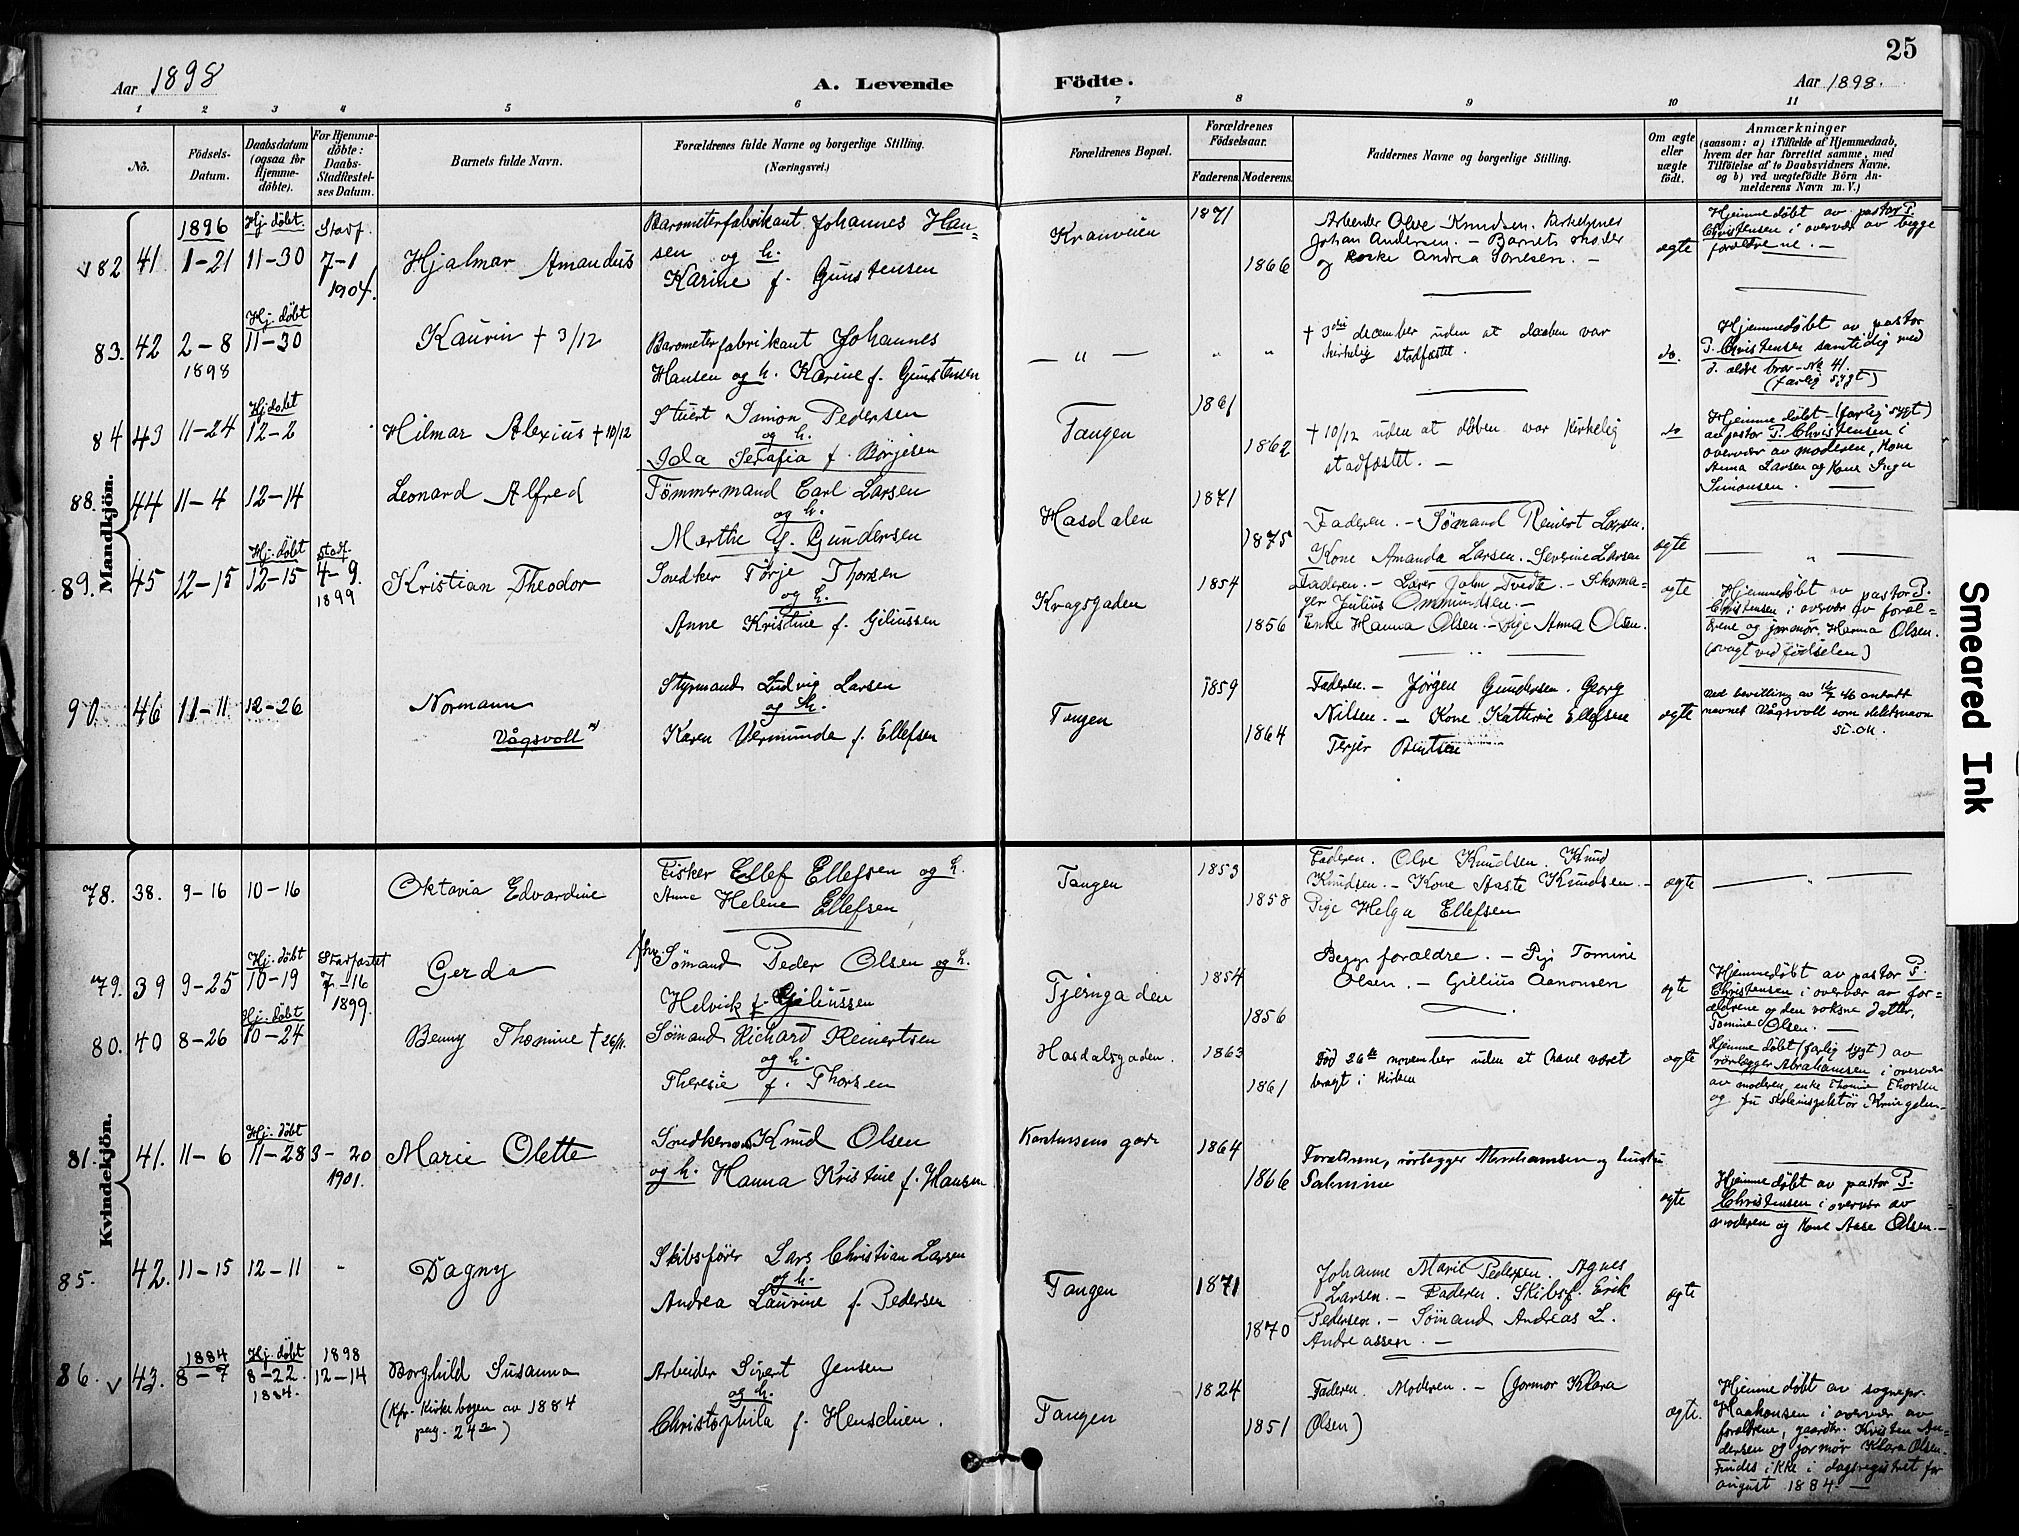 25
Aar 1898
A. Levende Födte.
Aar 1898.
1 2 3 4 5 6 7 8 9 10 11
No.
Födsels-
Datum.
Daabsdatum
(ogsaa for
Hjemme-
døbte).
For Hjemme-
døbte:
Daabs-
Stadfæstel-
ses Datum.
Barnets fulde Navn.
Forældrenes fulde Navne og borgerlige Stilling.
(Næringsvei.)
Forældrenes Bopæl.
Forældrenes
Födselsaar.
Faderens. Moderens.
Faddernes Navne og borgerlige Stilling.
Om ægte
eller
uægte
født.
Anmærkninger
(saasom: a) i Tilfælde af Hjemmedaab,
hvem der har forrettet samme, med
Tilføielse af to Daabsvidners Navne.
og b) ved uægtefødte Börn An-
melderens Navn m. V.)
Mandkjön.
82 41 1896 1-21
Hj. døbt 11-30
Stadf. 7-1 1904.
Hjalmar Amandus
Barometerfabrikant Johannes Han-
sen og h.
Karine f. Gunstensen
Kranveien
1871
1866
Arbeider Olve Knudsen. Kirketjener
Johan Andersen. - Barnets moder
ægte
Hjemmedøbt av pastor P.
Christensen i overvær av begge
forældrene. -
83. 42 2-8 1898
Hj. døbt 11-30
Kaurin † 3/12
Barometerfabrikant Johannes
Hansen og h. Karine f. Gunstensen
- " - " "
† 3die december uden at daaben var
kirkelig stadfæstet.
do.
Hjemmedøbt av pastor
P. Christensen samtidig med
d. ældre bror - No 41.
(farlig sygt)
84 43 11-24
Hj. døbt 12-2
Hilmar Alexius † 10/12
Stuert Simon Pedersen
og h.
Ida Serafia f. Börjesen
Tangen
1861
1862
† 10/12 uden at døben var kirkelig
stadfæstet. -
do
Hjemmedøbt (farlig sygt)
av pastor P. Christensen i
overvær av moderen, Kone
Anna Larsen og Kone Inga
Simonsen. -
88. 44 11-4 12-14
Leonard Alfred
Tømmermand Carl Larsen
og h.
Marthe f. Gundersen
Hasdalen
1871
1875
Faderen. - Sømand Reinert Larsen.
Kone Amanda Larsen. Severine Larsen
ægte
- " -
89. 45 12-15
Hj. døbt 12-15
Stadf. 4-9. 1899
Kristian Theodor
Snedker Torje Thorsen
og h.
Anne Kristine f. Giliussen
Kragsgaden
1854
1856
Faderen. - Lærer John Tvedte. - Skoma-
ger Julius Ommundsen. -
Enke Hanna Olsen. - Pige Anna Olsen.
ægte
Hjemmedøbt av pastor P.
Christensen i overvær av foræl-
drene og jormør. Hanna Olsen.
(svagt ved fødselen)
90. 46 11-11 12-26
Normann
Vågsvoll
Styrmand Ludvig Larsen
og h.
Karen Vermunda f. Ellefsen
Tangen
1859
1864
Faderen. - Jørgen Gundersen. Georg
Nilsen. - Kone Kathrine Ellefsene
Terjer Bentsen
ægte
Ved bevilling av 12/7 46 antatt
navnet Vågsvoll som slektsnavn
Kvindekjön.
78. 38. 9-16 10-16
Oktavia Edvardine
Fisker Ellef Ellefsen og h.
Anne Helene Ellefsen
Tangen
1853
1858
Faderen. Olve Knudsen. Knud
Knudsen. - Kone Aaste Knudsen. -
Pige Helga Ellefsen
ægte
79. 39 9-25
Hj. døbt 10-19
Stadfæstet 7-16 1899.
Gerda
Sømand Peder Olsen og h.
Helvick f. Giliussen
Tjerngaden
1854
1856
Begge forældre. - Pige Tomine
Olsen. - Gillius Aanonsen
ægte
Hjemmedøbt av pastor P.
Christensen i overvær av for-
ældrene og den voksne datter,
Tomine Olsen. -
80. 40 8-26
Hj. døbt 10-24
Benny Thomine † 26/11.
Sømand Richard Reinertsen
og h.
Theresie f. Thorsen
Hasdalsgaden.
1863
1861
Død 26de november uden at have været
bragt i kirken
ægte
Hjemmedøbt (farlig sygt) av
rørlegger Abrahamsen i overvær
av moderen, enke Thomine Thorsen
81. 41. 11-6
Hj. døbt 11-28
3-20 1901.
Marie Olette
Snedker Knud Olsen
og h. Hanna Kristine f. Hansen
1864
1866
Forældrene, rørlegger Abrahamsen og hustru
Salmine
ægte
Hjemmedøbt av pastor P.
Christensen i overvær av
moderen og Kone Aase Olsen. -
85. 42. 11-15 12-11 -
Dagny
Skibsfører Lars Christian Larsen
og h.
Andrea Laurine f. Pedersen
Tangen
1871
1870
Johanne Marie Pedersen. Agnes
Larsen. - Faderen. Skibsf. Erik
Pedersen. - Sømand Andreas L.
Andreassen. -
ægte
86. 43. 1884 8-7
Hj. døbt 8-22. 1884.
1898 12-14
Borghild Susanna
(Kfr. Kirkebogen av 1884
pag. 24)
Arbeider Sivert Jensen
og h.
Christophila f. Henschien.
Tangen
1824
1851
Faderen. Moderen. - (Jormor Klara
Olsen)
ægte.
Hjemmedøbt av sognepr.
Haakonsen i overvær av
forældrene, gaardbr. Kristen An-
dersen og jormør Klara Olsen.
Findes ikke i dagsregistret for
august 1884. -
Smeared Ink